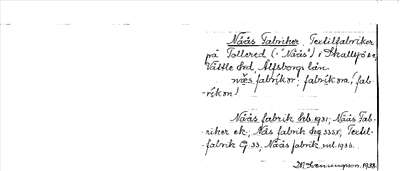 Nääs Fabriker, Textilfabriker
på Tollered ("Nääs") i Skallsjö sn,
Vättle hd Älfsborgs län.
nä̀s fabríkor; fabríkona; fab-
ríkon;
Nääs fabrik 1931; Nääs Fab-
riker ek.; Nääs fabrik; Textil-
fabrik 33; Nääs fabrik 1936.
1938